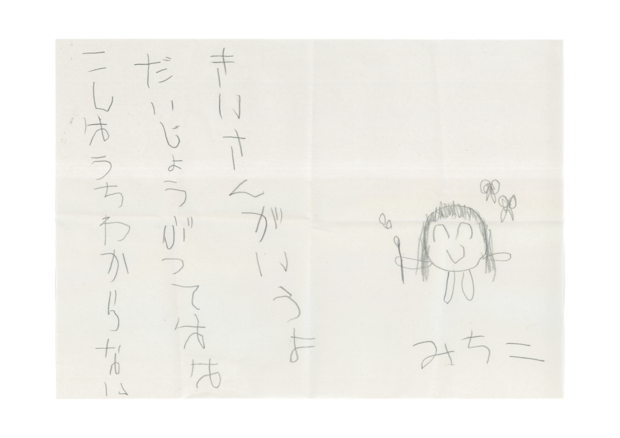 みちこ
きいさんがいうよ
だいじょうぶってはは
こんはうちわからない